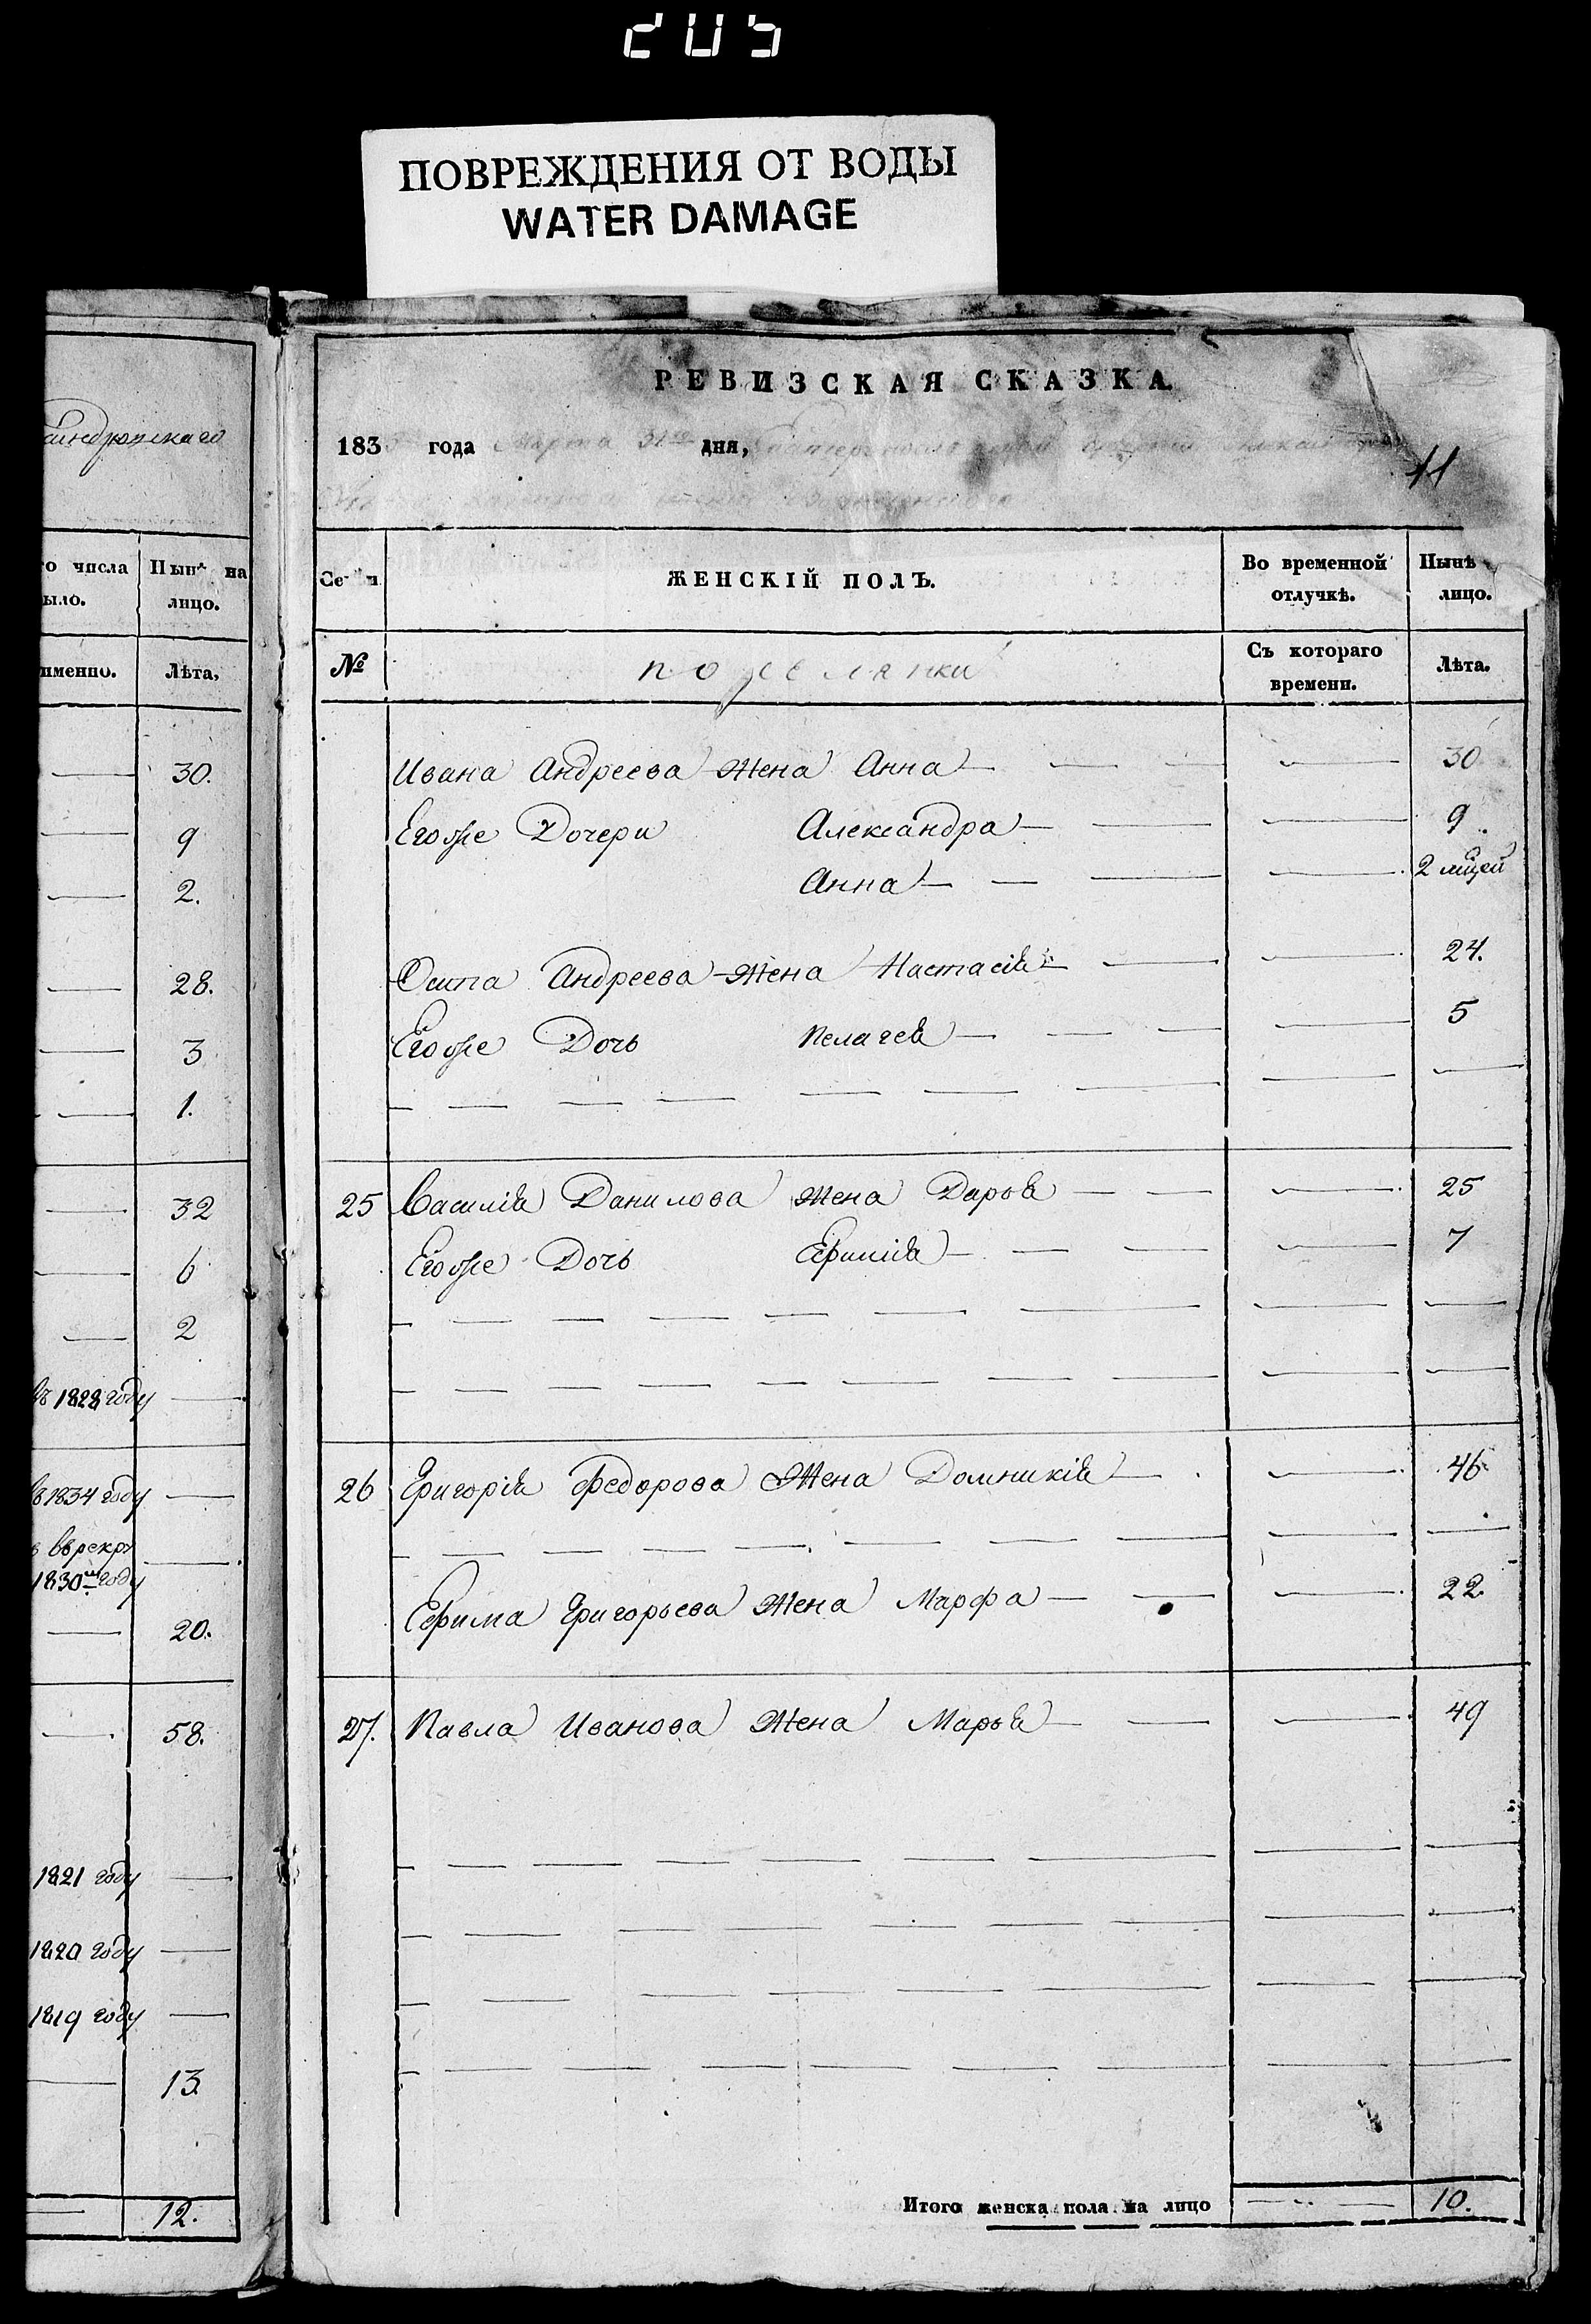 205
ПОВРЕЖДЕНИЯ ОТ ВОДЫ
WATER DAMAGE
го числа
ыло.
Нынѣ на
лицо.
именно.
Лѣта,
30.
9
2.
28.
3
1.
32
6
2
въ 1828 году
в 1834 году
1830 году
20.
58.
1821 году
1820 году
1819 году
13.
12.
РЕВИЗСКАЯ СКАЗКА.
183 года Марта 31 дня,
11
ЖЕНСКІЙ ПОЛЪ.
Во временной
отлучкѣ.
Нынѣ
лицо.
№
поселянки
Съ котораго
времени.
Лѣта.
Ивана Андреева Жена Анна — — — — 30
Егоже Дочери Александра — — — 9.
Анна — — — — 2 мѣцей
Осипа Андреева Жена Настасія — — — 24.
Егоже Дочь Пелагея — — — — 5
25 Василія Данилова Жена Дарья — — — 25
Егоже Дочь Ефимія — — — — 7
26 Григорія Федорова Жена Домникія — — 46
Ефима Григорьева Жена Марфа — — — 22.
27. Павла Иванова Жена Марья — — — 49
Итого женска пола на лицо — 10.